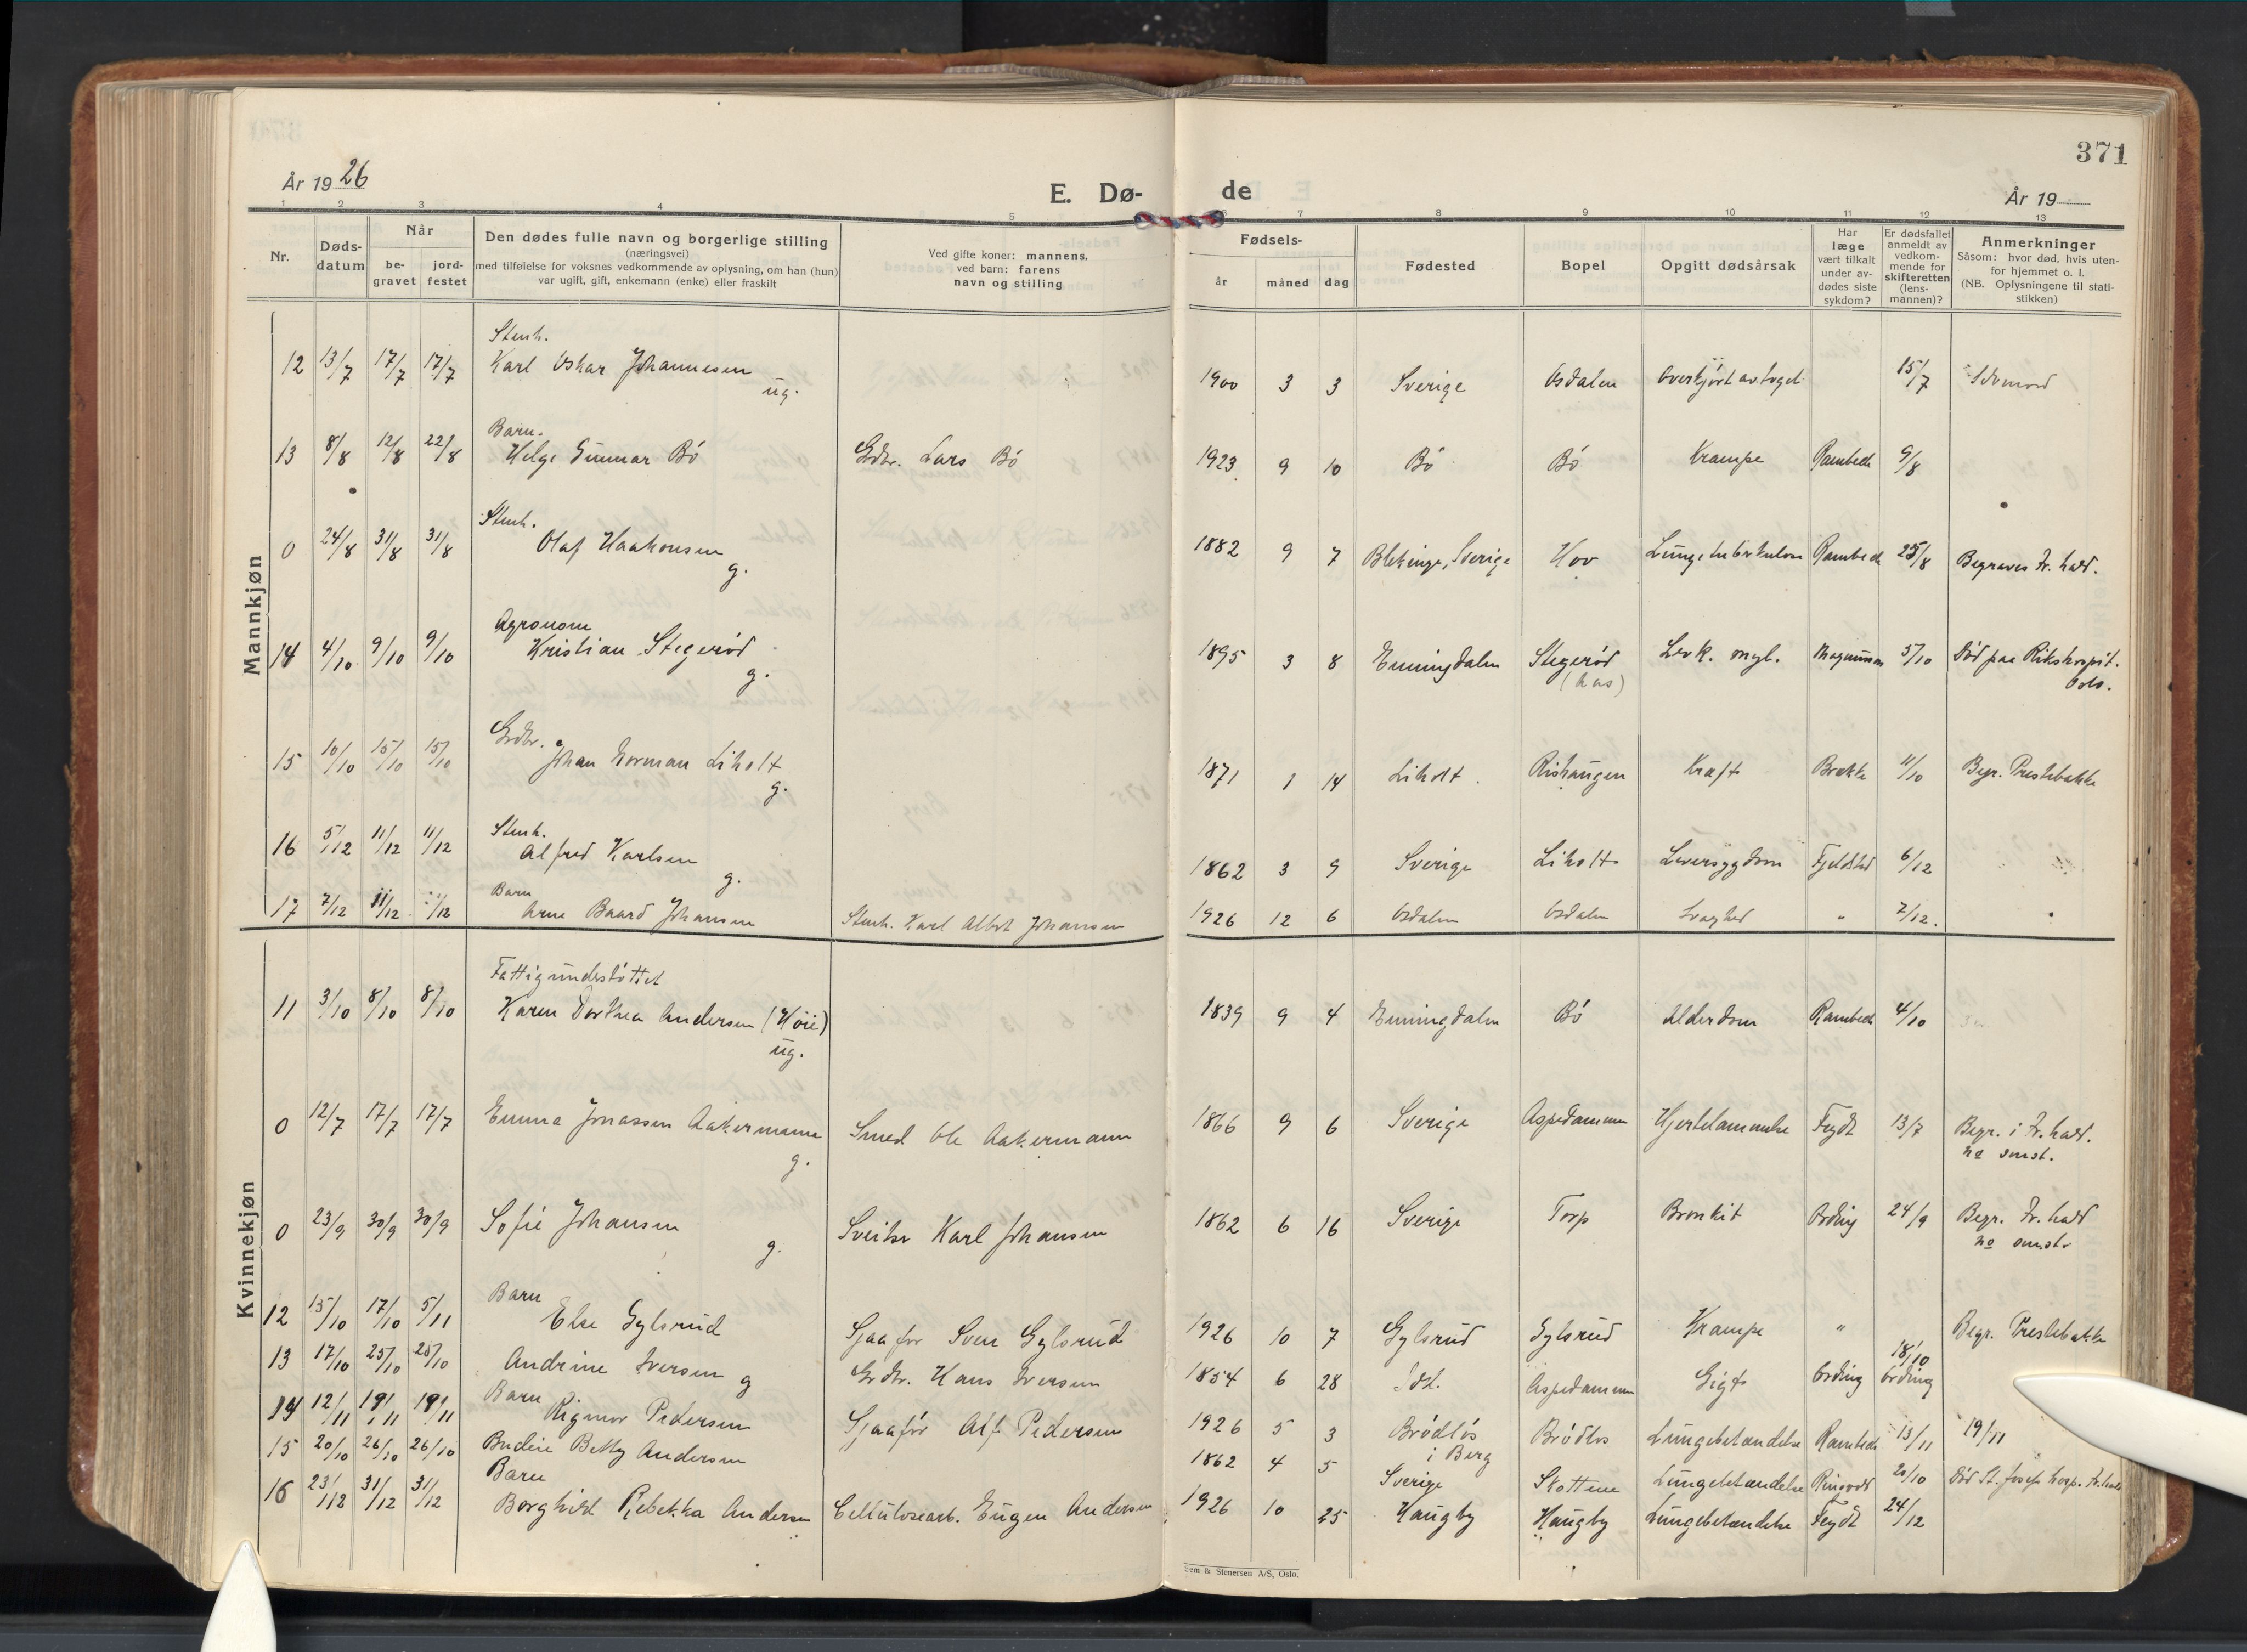 371
År 19 26
E. Dø- de
År 19
1 2 3 4 5 6 7 8 9 10 11 12 13
Nr.
Døds-
datum
Når
be-
gravet
jord-
festet
Den dødes fulle navn og borgerlige stilling
(næringsvei)
med tilføielse for voksnes vedkommende av oplysning, om han (hun)
var ugift, gift, enkemann (enke) eller fraskilt
Ved gifte koner: mannens,
ved barn: farens
navn og stilling
Fødsels-
år måned dag
Fødested
Bopel
Opgitt dødsårsak
Har
læge
vært tilkalt
under av-
dødes siste
sykdom?
Er dødsfallet
anmeldt av
vedkom-
mende for
skifteretten
(lens-
mannen)?
Anmerkninger
Såsom: hvor død, hvis uten-
for hjemmet o. l.
(NB. Oplysningene til stati-
stikken)
Mannkjøn
Stenh.
12 13/7 17/7 17/7 Karl Oskar Johannesen 1900 3 3 Sverige Osdalen Overkjørt av toget 15/7 Selvmord
ug.
Barn.
13 8/8 12/8 22/8 Helge Gunnar Bö Grdbr. Lars Bö 1923 9 10 Bö Bö Krampe Rambech 9/8
Stenh.
0 24/8 31/8 31/8 Olaf Haakonsen 1882 9 7 Blekinge, Sverige Hov Lungetuberkulose Rambech 25/8 Begraves Fr. hald.
g.
Agronom
14 4/10 9/10 9/10 Kristian Stegerød 1895 3 8 Enningdalen Stegerød Levk. myl. Magnussen 5/10 Död paa Rikshospit.
g. (hus) Oslo.
Grdbr.
15 10/10 15/10 15/10 Johan Herman Liholt 1871 1 14 Liholt Rishaugen Kræft Brække 11/10 Begr. Prestebakke
g.
Stenh.
16 5/12 11/12 11/12 Alfred Karlsen 1862 3 9 Sverige Liholt Leversygdom Fjeldstad 6/12
g.
Barn
17 7/12 11/12 11/12 Arne Baard Johansen Stenh. Karl Albert Johansen 1926 12 6 Osdalen Osdalen Svaghed " 7/12.
Kvinnekjøn
Fattigunderstöttet
11 3/10 8/10 8/10 Karen Dorthea Andersen (Höie) 1839 9 4 Enningdalen Bö Alderdom Rambech 4/10
ug.
0 12/7 17/7 17/7 Emma Jonassen Aakermann Smed Ole Aakermann 1866 9 6 Sverige Aspedammen Hjertelammelse Feydt 13/7 Begr. i Fr. hald.
g. no smst.
0 23/9 30/9 30/9 Sofie Johansen Sveitser Karl Johansen 1862 6 16 Sverige Torp Bronkit Ording 24/9 Begr. Fr. hald
g. no smst.
Barn
12 15/10 17/10 5/11 Else Gylsrud Sjaafør Sven Gylsrud 1926 10 7 Gylsrud Gylsrud Krampe " Begr. Prestebakke
18/10
13 17/10 25/10 25/10 Andrine Iversen g Grdbr. Hans Iversen 1854 6 28 Idd. Aspedammen Gigt Ording Ording
Barn
14 12/11 19/11 19/11 Rigmor Pedersen Sjaafør Alf Pedersen 1926 5 3 Brödlös Brödlös Lungebetændelse Rambech 13/11 19/11
i Berg
15 20/10 26/10 26/10 Budeie Betty Andersen 1862 4 5 Sverige Skottene Lungebetændelse Ringvold 21/10 Död St. Josefs hosp. Fr. hald
Barn
16 23/12 31/12 31/12 Borghild Rebekka Andersen Cellulosearb. Eugen Andersen 1926 10 25 Haugby Haugby Lungebetændelse Feydt 24/12
Sem & Stenersen A/S, Oslo.